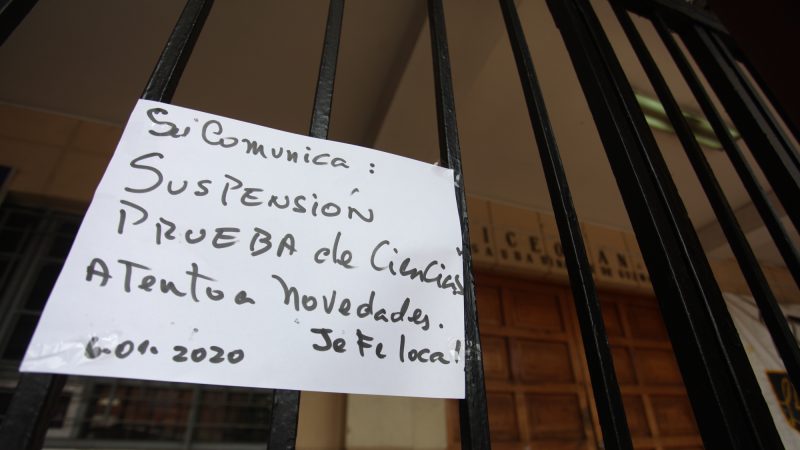 Se Comunica :
SUSPENSIÓN
PRUEBA de Ciencias
ATento a Novedades.
6.01. 2020 Jefe loca!
LICEO